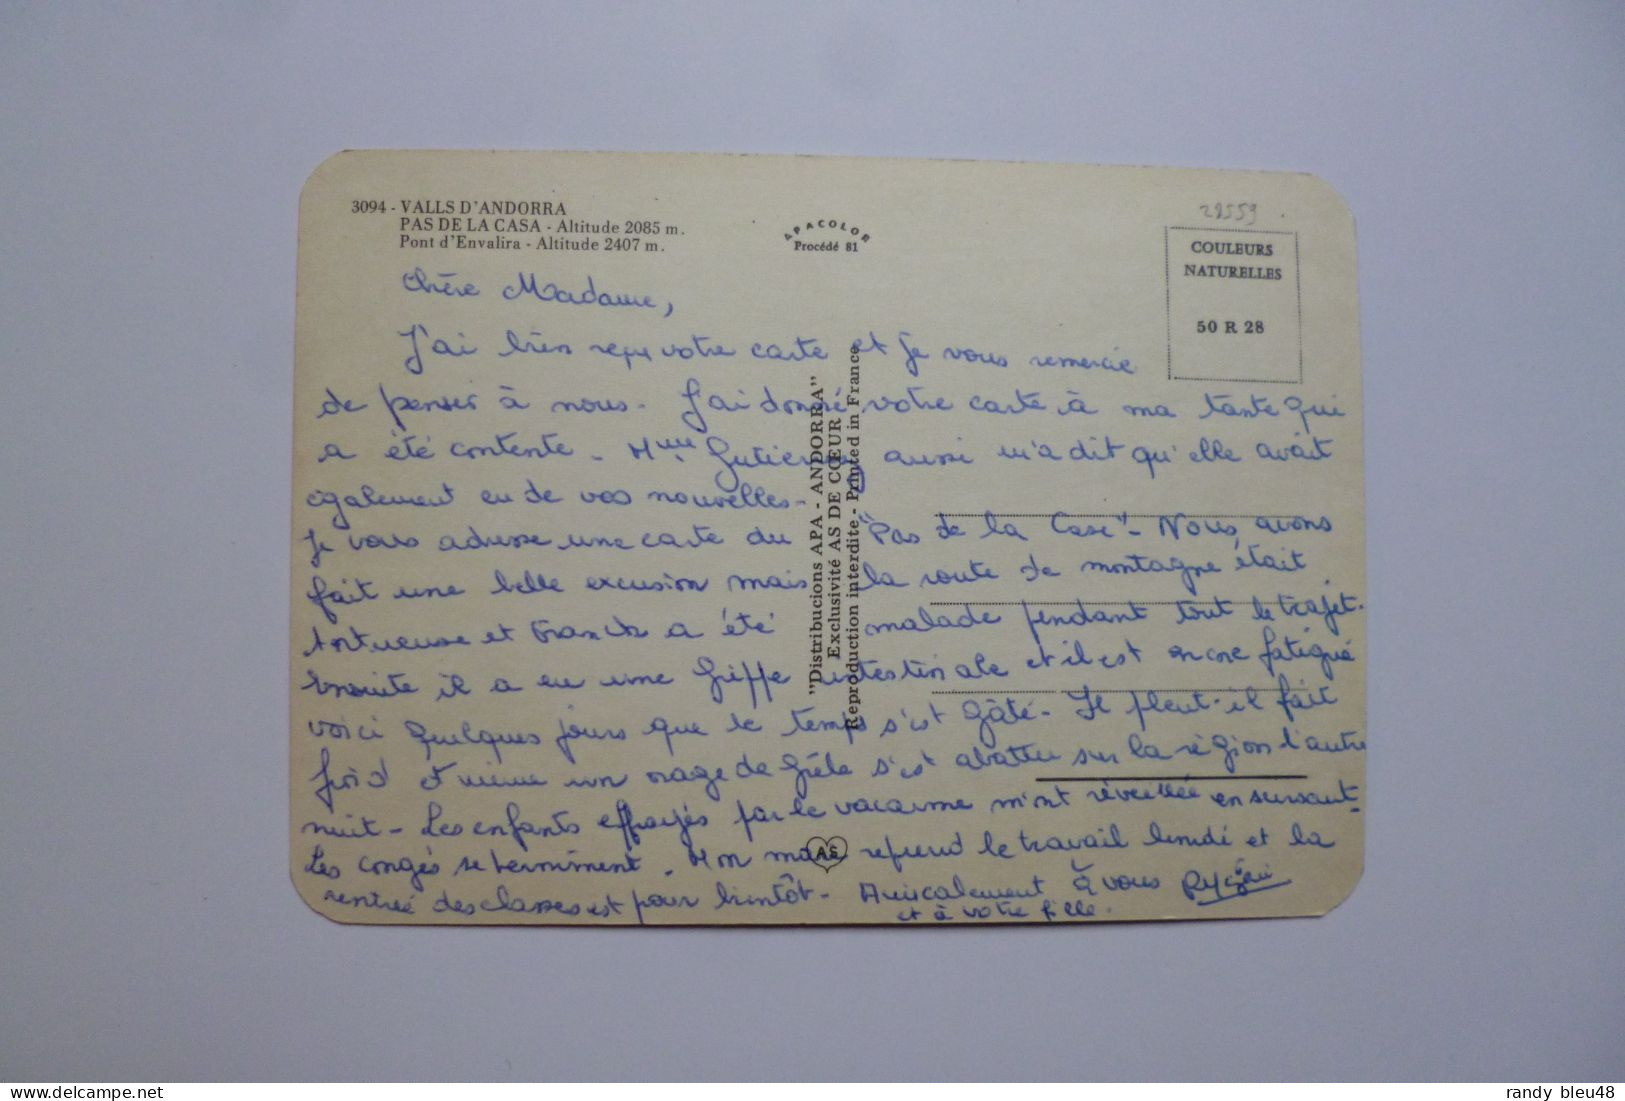 3094 - VALLS D'ANDORRA
PAS DE LA CASA - Altitude 2085 m.
Pont d'Envalira - Altitude 2407 m.
APACOLOR
Procédé 81
28559
COULEURS
NATURELLES
50 R 28
Chère Madame,
J'ai bien reçu votre carte et je vous remercie
de penser à nous. J'ai donné votre carte à ma tante qui
a été contente. Mme aussi m'a dit qu'elle avait
également eu de vos nouvelles.
Je vous adresse une carte du "Pas de la Case". Nous avons
fait une belle excusion mais la route de montagne était
tortueuse et Franck a été malade pendant tout le trajet.
Ensuite il a eu une Grippe intestinale et il est encore fatigué
voici quelques jours que le temps s'est gâté. Il pleut. il fait
froid et même un orage de Grêle s'est abattu sur la région l'autre
nuit. Les enfants effrayés par le vacarme m'ont réveillée en sursaut.
Les congés se terminent. Mon mari reprend le travail lundi et la
rentrée des classes est pour bientôt. Amicalement à vous
et à votre fille.
"Distribucions APA - ANDORRA"
Exclusivité AS DE CŒUR
Reproduction interdite - Printed in France
AS
randy bleu48